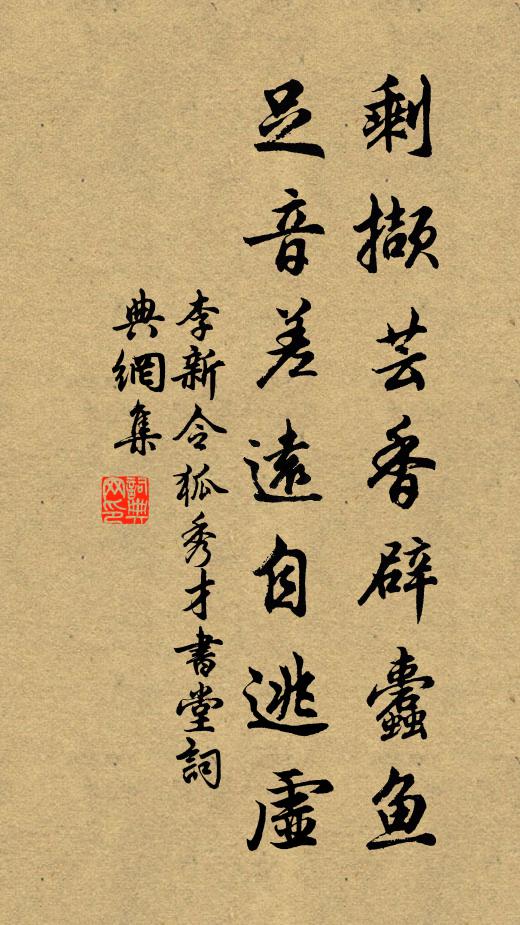 剩擷芸香辟蠹鱼
足音差遠自逃虛
李新令狐秀才書堂詞
典網集
詞典網印